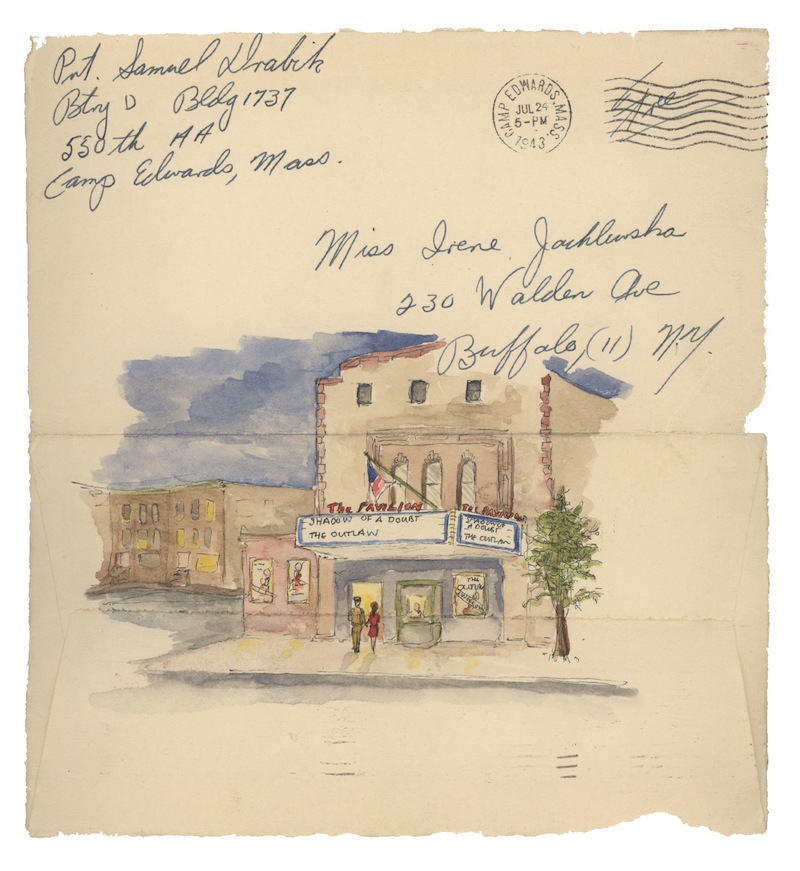 Pvt. Samuel Drabik
Btry D Bldg 1737
550th AA
Camp Edwards, Mass.
CAMP EDWARDS, MASS.
JUL 24
5-PM
1943
Free
Miss Irene Jachlewska
230 Walden Ave
Buffalo, (11) N.Y.
The PAVILION
SHADOW OF A DOUBT
THE OUTLAW
THE PAVILION
SHADOW OF
A DOUBT
THE OUTLAW
THE
OUTLAW